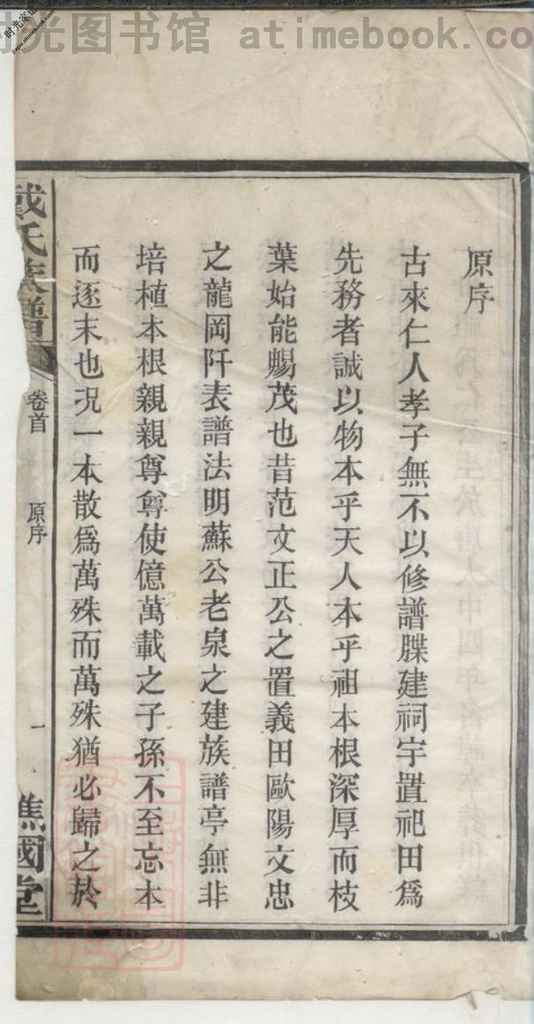 时光图书馆 atimebook.co
原序
古來仁人孝子無不以修譜牒建祠宇置祀田爲
先務者誠以物本乎天人本乎祖本根深厚而枝
葉始能暢茂也昔范文正公之置義田歐陽文忠
之龍岡阡表譜法明蘇公老泉之建族譜亭無非
培植本根親親尊尊使億萬載之子孫不至忘本
而逐末也况一本散爲萬殊而萬殊猶必歸之於
戴氏族譜
卷首
原序
一
譙國堂